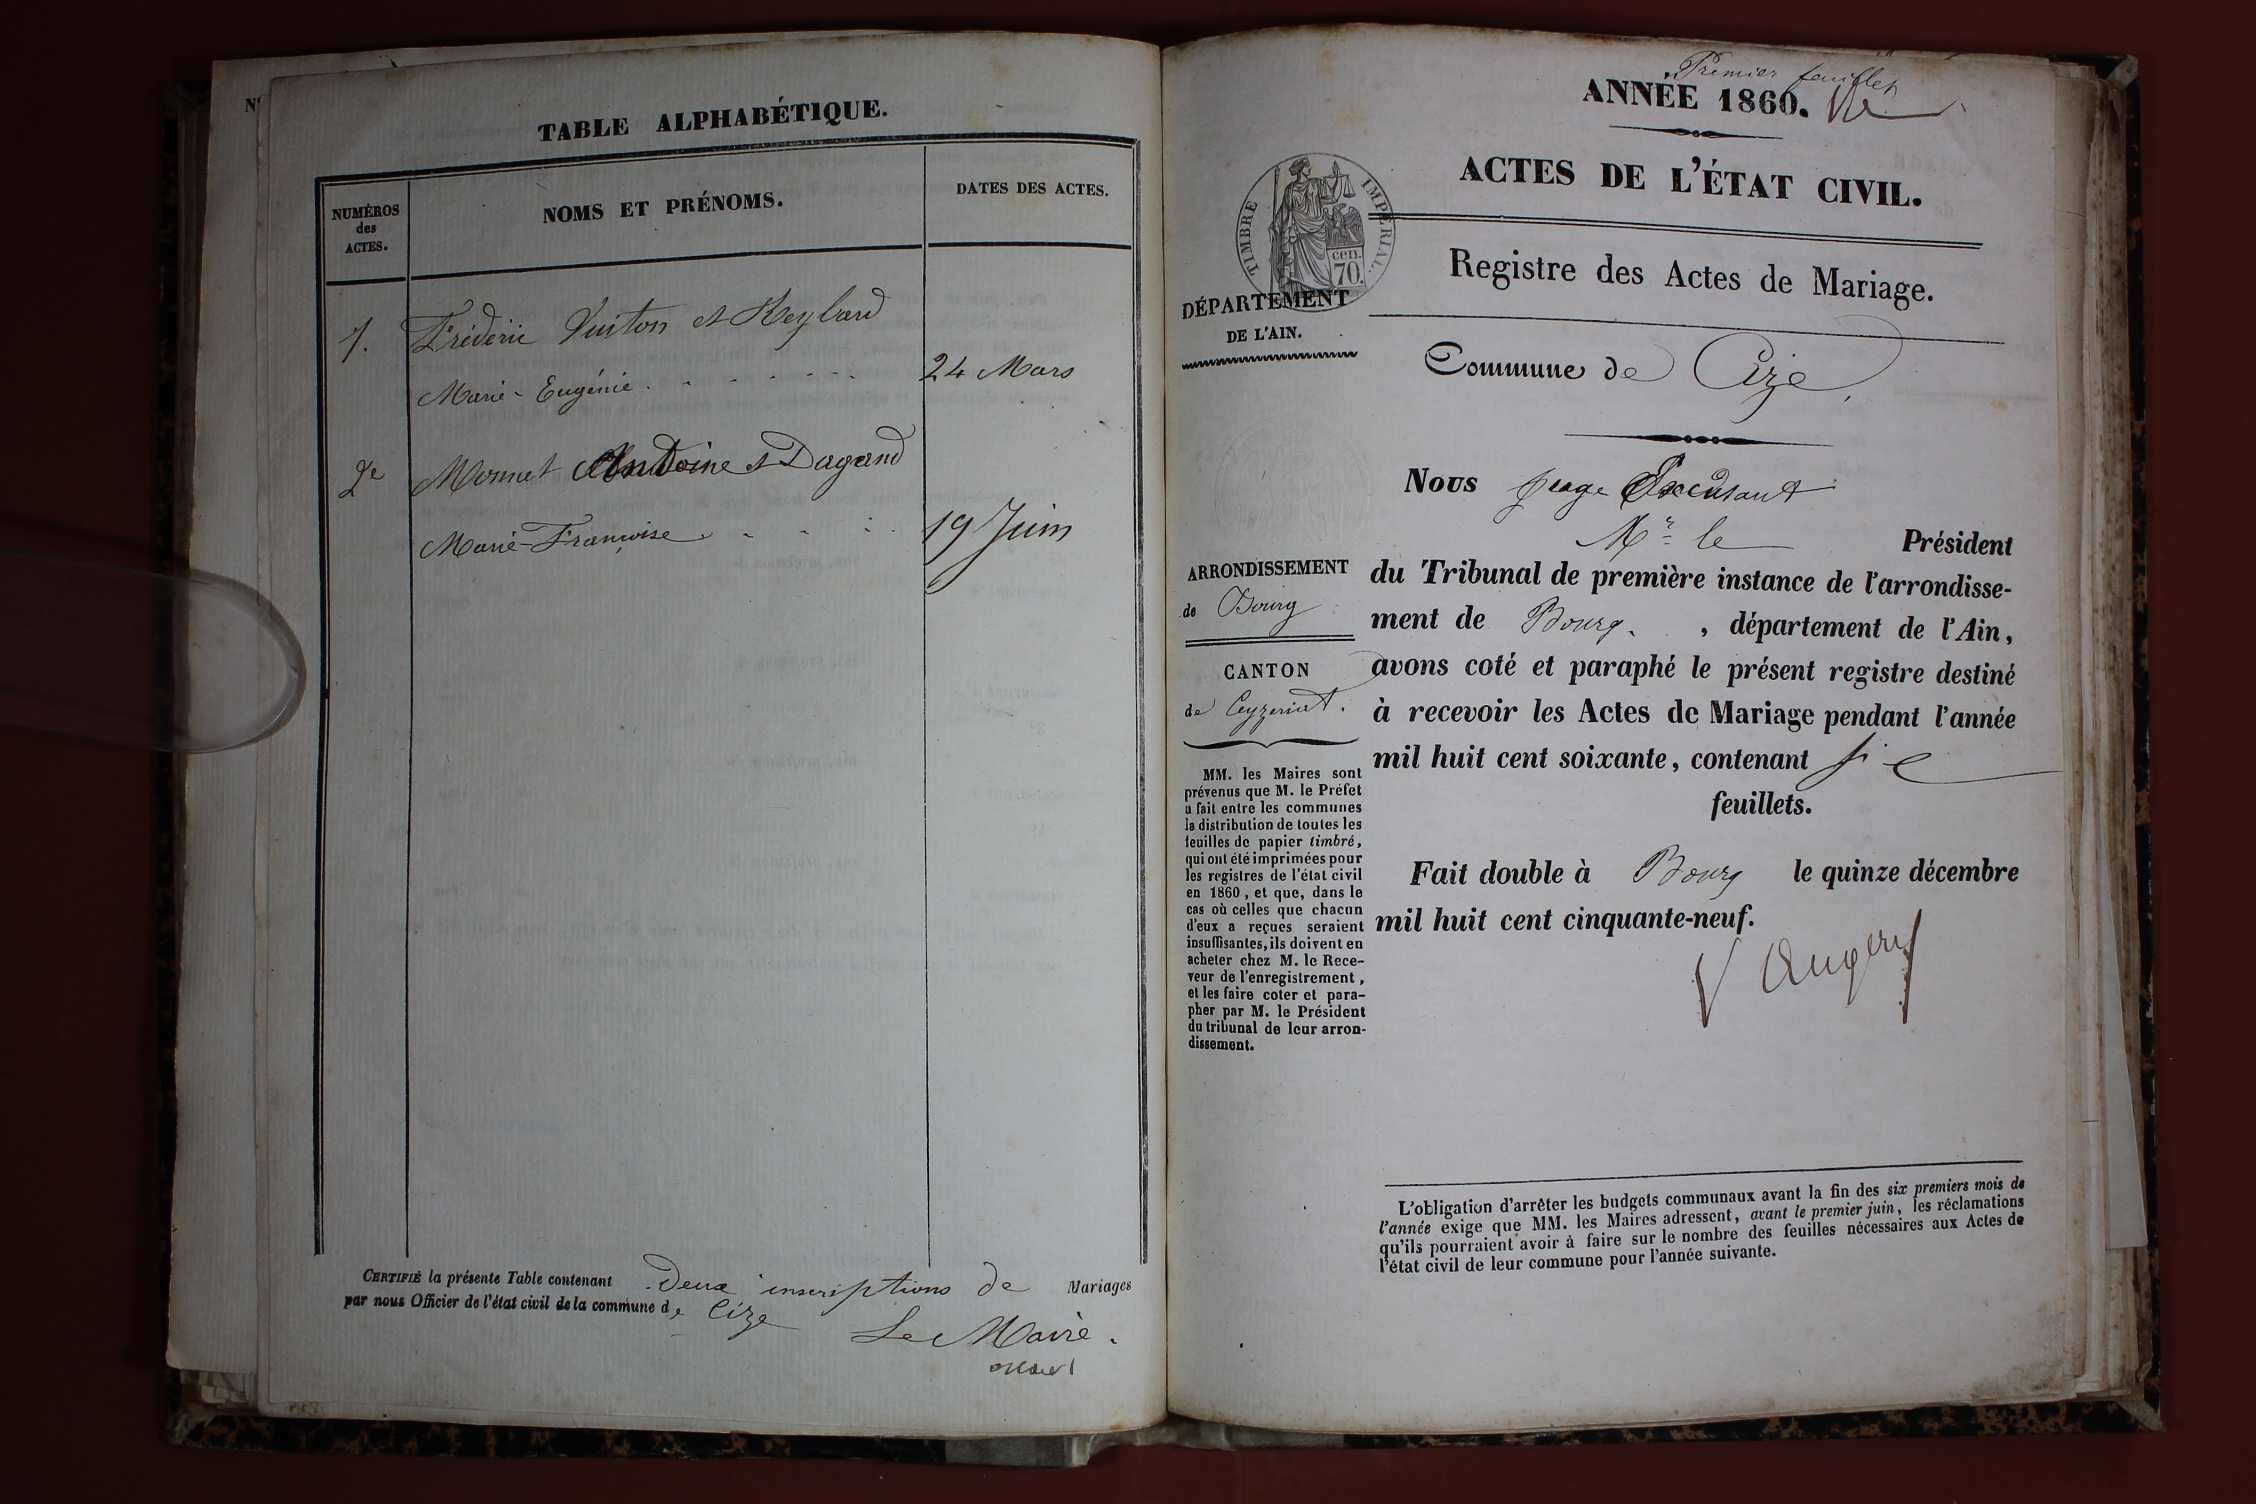 TABLE ALPHABÉTIQUE.
NUMÉROS
des
ACTES.
NOMS ET PRÉNOMS.
DATES DES ACTES.
1. Frédéric Vuiton et Reylard
Marie-Eugénie . . . . . . . 24 Mars
2e Monnet Antoine et Dagand
Marie-Françoise . . . . 19 Juin
CERTIFIÉ la présente Table contenant Deux inscriptions de Mariages
par nous Officier de l'état civil de la commune de Cize
Le Maire.
Premier feuillet
ANNÉE 1860.
ACTES DE L'ÉTAT CIVIL.
TIMBRE IMPÉRIAL.
cen.
70.
Registre des Actes de Mariage.
DÉPARTEMENT
DE L'AIN.
Commune de Cize
Nous juge
Mr le Président
du Tribunal de première instance de l'arrondisse-
ment de Bourg. , département de l'Ain,
avons coté et paraphé le présent registre destiné
à recevoir les Actes de Mariage pendant l'année
mil huit cent soixante, contenant
feuillets.
Fait double à Bourg le quinze décembre
mil huit cent cinquante-neuf.
ARRONDISSEMENT
de Bourg
CANTON
de Ceyzeriat.
MM. les Maires sont
prévenus que M. le Préfet
a fait entre les communes
la distribution de toutes les
feuilles de papier timbré,
qui ont été imprimées pour
les registres de l'état civil
en 1860, et que, dans le
cas où celles que chacun
d'eux a reçues seraient
insuffisantes, ils doivent en
acheter chez M. le Rece-
veur de l'enregistrement,
et les faire coter et para-
pher par M. le Président
du tribunal de leur arron-
dissement.
L'obligation d'arrêter les budgets communaux avant la fin des six premiers mois de
l'année exige que MM. les Maires adressent, avant le premier juin, les réclamations
qu'ils pourraient avoir à faire sur le nombre des feuilles nécessaires aux Actes de
l'état civil de leur commune pour l'année suivante.